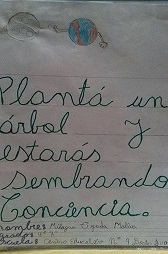 Plantá un
árbol y
estarás
sembrando
Conciencia.
Nombre: Milagro
grado: 
Escuela: Centro Educativo Nº 9